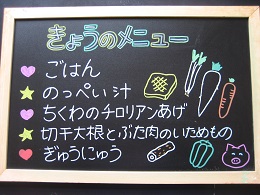 きょうのメニュー
ごはん
のっぺい汁
ちくわのチロリアンあげ
切干大根とぶた肉のいためもの
ぎゅうにゅう